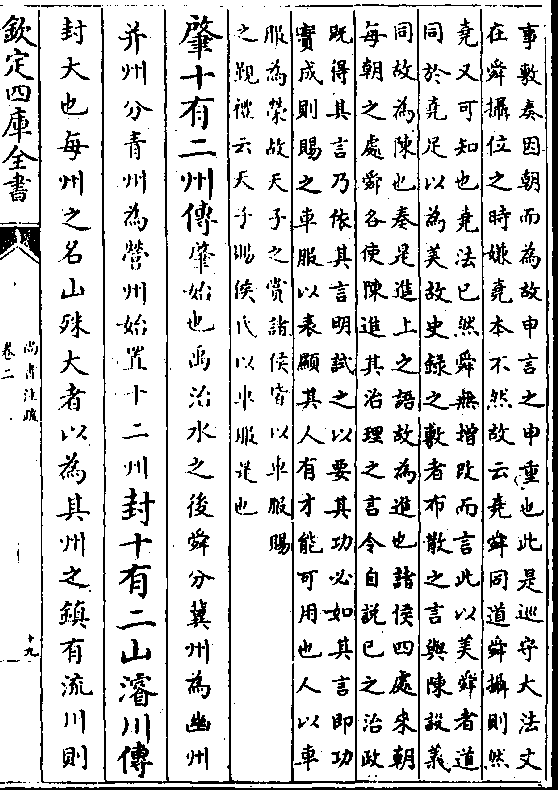 事敷奏因朝而為故申言之申重也此是巡守大法文
在舜攝位之時嫌堯本不然故云堯舜同道舜攝則然
堯又可知也堯法已然舜無增改而言此以美舜者道
同於堯足以為美故史錄之敷者布散之言與陳設義
同故為陳也奏是進上之語故為進也諸侯四處來朝
每朝之處舜各使陳進其治理之言令自說己之治政
既得其言乃依其言明試之以要其功必如其言即功
實成則賜之車服以表顯其人有才能可用也人以車
服為榮故天子之賞諸侯皆以車服賜
之覲禮云天子賜侯氏以車服是也
肇十有二州傳肇始也禹治水之後舜分冀州為幽州
并州分青州為營州始置十二州封十有二山濬川傳
封大也每州之名山殊大者以為其州之鎮有流川則
欽定四庫全書
尚書注疏
卷二
十九